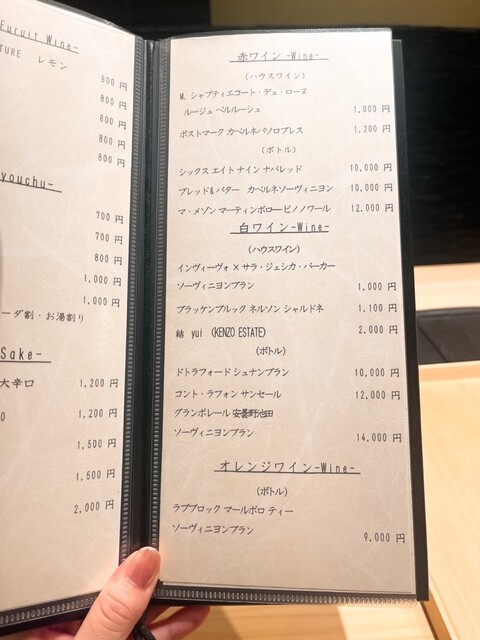 Furuit Wine-
TURE レモン
800 円
800 円
800 円
800 円
800 円
youchu-
700 円
700 円
800 円
1,000 円
1,000 円
ーダ割・お湯割り
Sake-
大辛口 1,200 円
1,200 円
1,500 円
1,500 円
2,000 円
赤ワイン -Wine-
(ハウスワイン)
M. シャプティエコート・デュ・ローヌ
ルージュ ベルルーシュ 1,000 円
ポストマーク カベルネパソロブレス 1,200 円
(ボトル)
シックス エイト ナイン ナパレッド 10,000 円
ブレッド&バター カベルネソーヴィニヨン 10,000 円
マ・メゾン マーティンボロー ピノ ノワール 12,000 円
白ワイン-Wine-
(ハウスワイン)
インヴィーヴォ × サラ・ジェシカ・パーカー
ソーヴィニヨンブラン 1,000 円
ブラッケンブルック ネルソン シャルドネ 1,100 円
結 yui (KENZO ESTATE) 2,000 円
(ボトル)
ドトラフォード シュナンブラン 10,000 円
コント・ラフォン サンセール 12,000 円
グランポレール 安曇野池田
ソーヴィニヨンブラン 14,000 円
オレンジワイン-Wine-
(ボトル)
ラブブロック マールボロ ティー
ソーヴィニヨンブラン 9,000 円